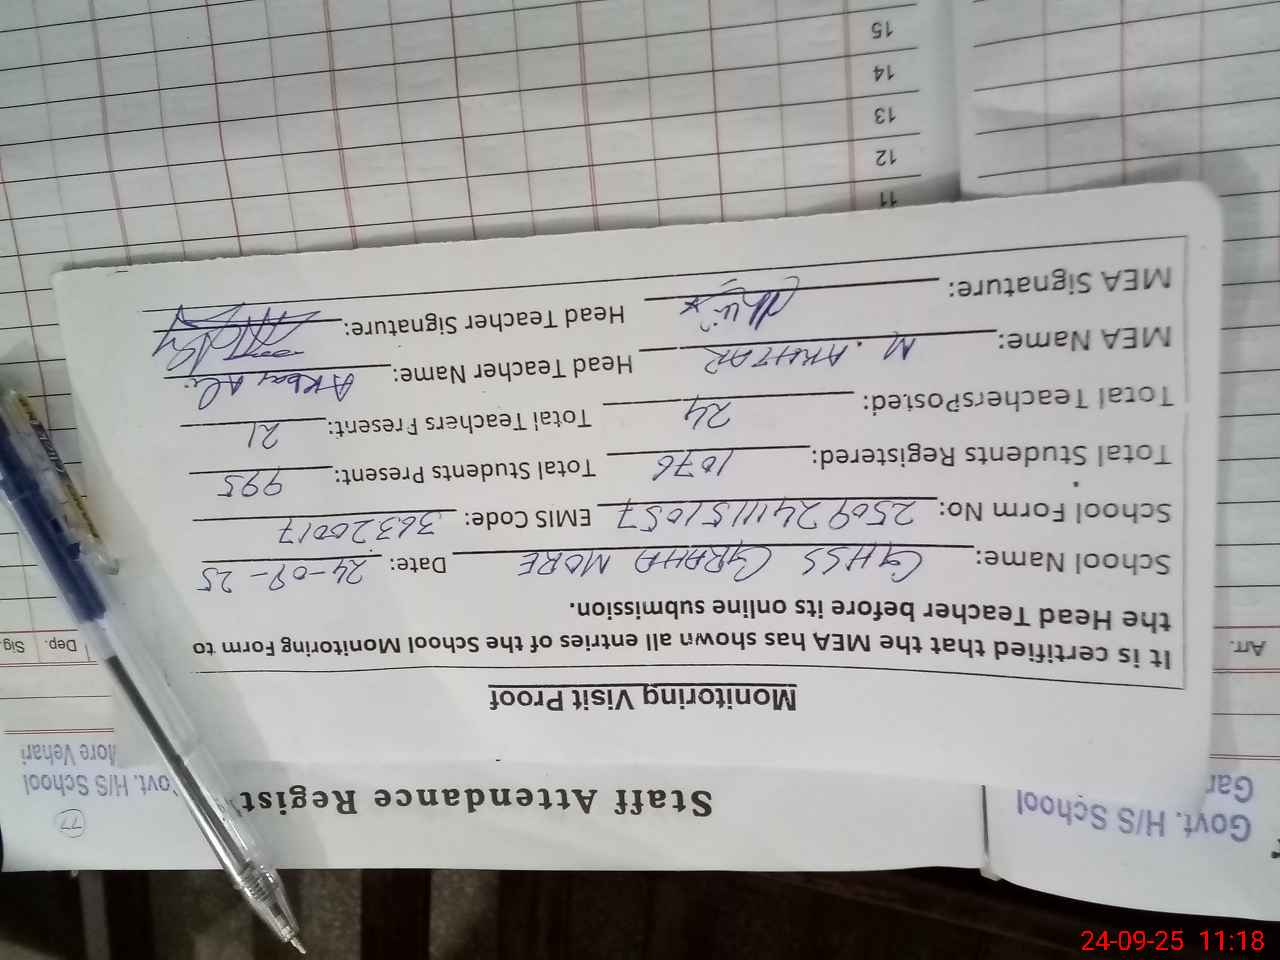 Govt. H/S School
Gar
Staff Attendance Regist
77
ovt. H/S School
More Vehari
Arr.
Dep.
Sig.
Monitoring Visit Proof
It is certified that the MEA has shown all entries of the School Monitoring Form to
the Head Teacher before its online submission.
School Name: GHSS GRAHA MORE Date: 24-09-25
School Form No: 25092411151057 EMIS Code: 36320017
Total Students Registered: 1076 Total Students Present: 995
Total TeachersPosted: 24 Total Teachers Present: 21
MEA Name: M. AKHTAR Head Teacher Name: AKbar Ali
MEA Signature: Head Teacher Signature:
11
12
13
14
15
24-09-25 11:18